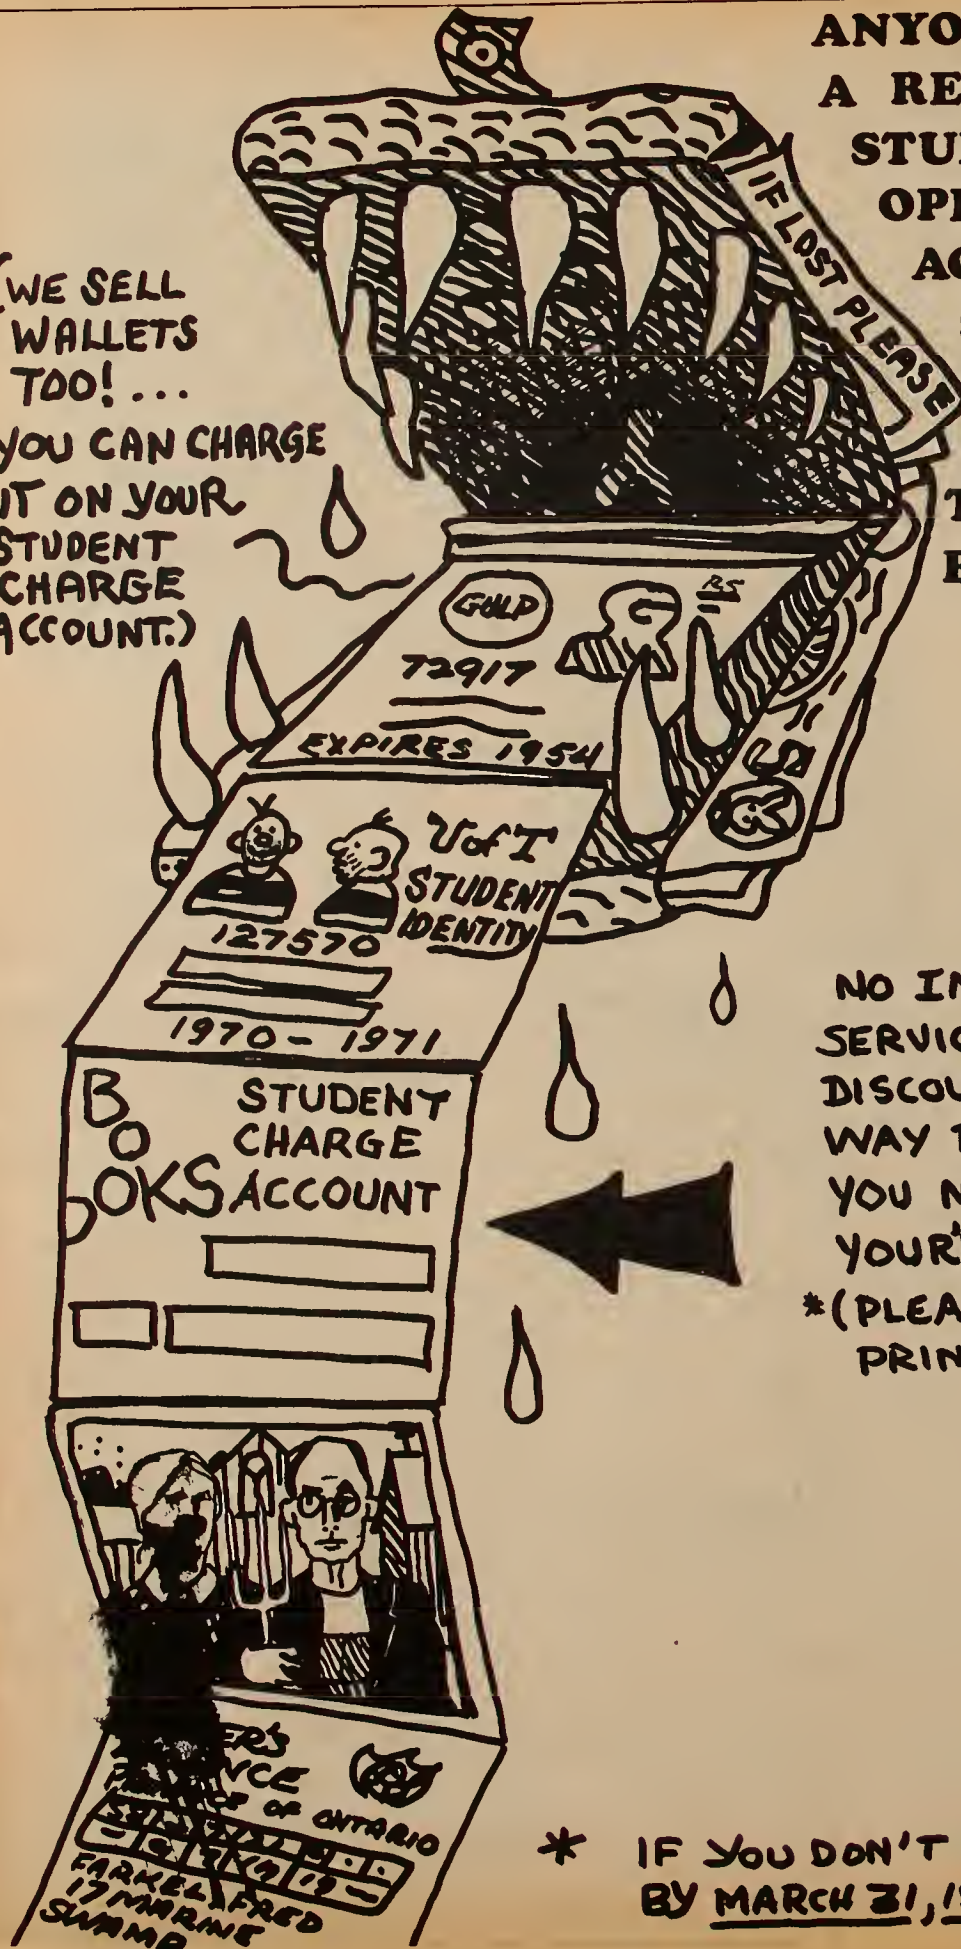 ANYO
A RE
STU
OP
AC
IF LOST PLEASE
(WE SELL
WALLETS
TOO!...
YOU CAN CHARGE
ON YOUR
STUDENT
CHARGE
ACCOUNT.)
GULP
RS
72917
EXPIRES 1954
U of T
STUDENT
IDENTITY
127570
1970 - 1971
BOOKS
STUDENT
CHARGE
ACCOUNT
NO IN
SERVIC
DISCOU
WAY T
YOU N
YOUR
*(PLEA
PRIN
OF ONTARIO
FARKEL, FRED
17 MARINE
SWAMP
* IF YOU DON'T
BY MARCH 31, 19